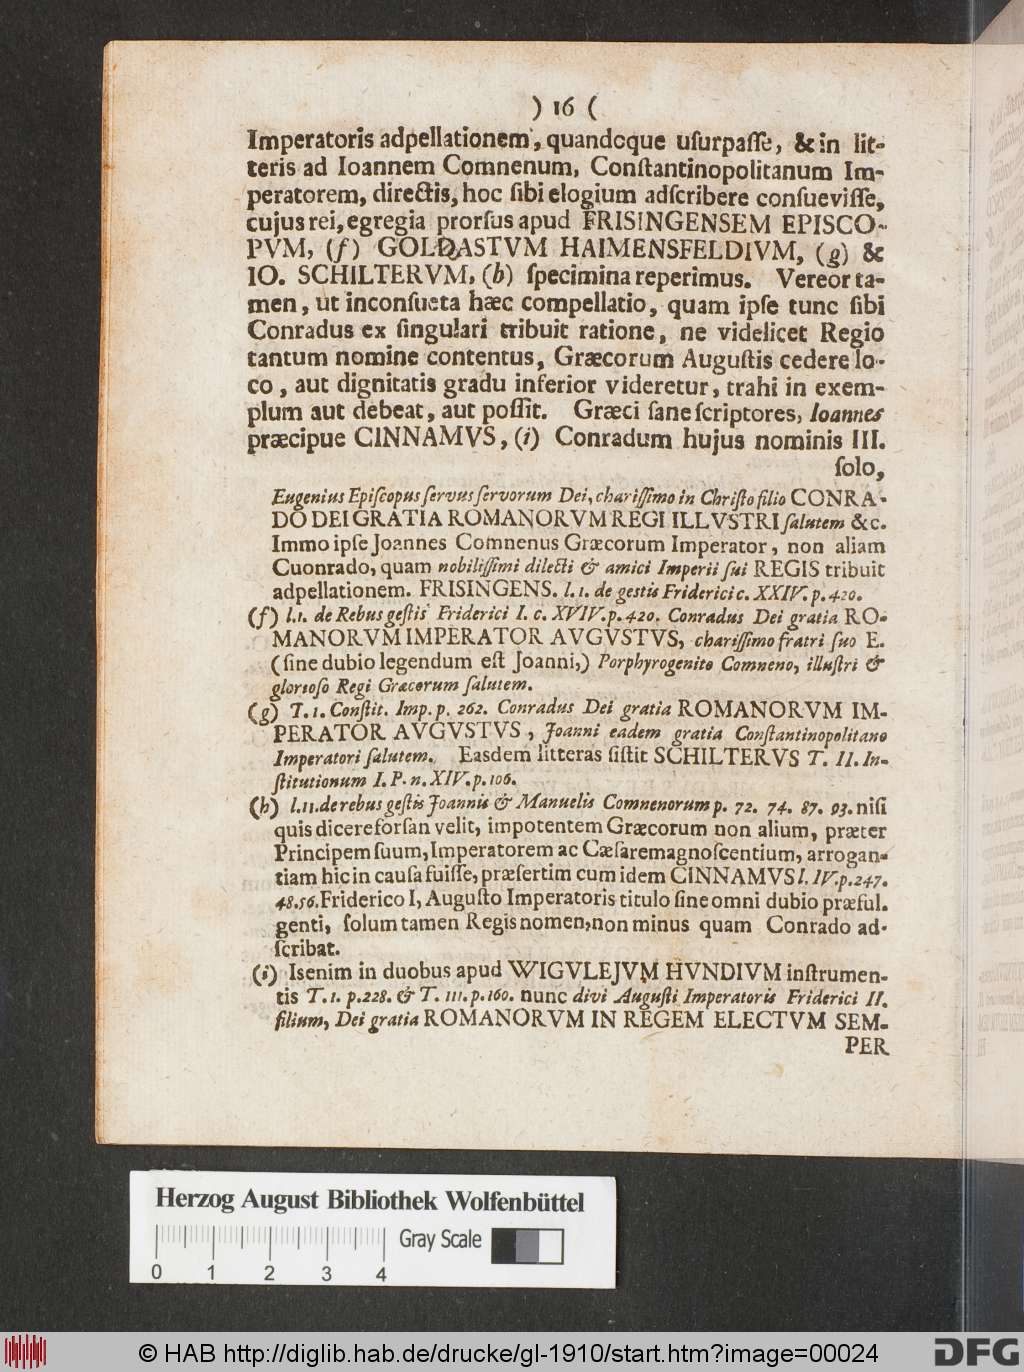 ) 16 (
Imperatoris adpellationem, quandoque uſurpaſſe, & in lit-
teris ad Ioannem Comnenum, Conſtantinopolitanum Im-
peratorem, directis, hoc ſibi elogium adſcribere conſueviſſe,
cujus rei, egregia prorſus apud FRISINGENSEM EPISCO-
PVM, (f) GOLDASTVM HAIMENSFELDIVM, (g) &
IO. SCHILTERVM, (h) ſpecimina reperimus. Vereor ta-
men, ut inconſueta hæc compellatio, quam ipſe tunc ſibi
Conradus ex ſingulari tribuit ratione, ne videlicet Regio
tantum nomine contentus, Græcorum Auguſtis cedere lo-
co, aut dignitatis gradu inferior videretur, trahi in exem-
plum aut debeat, aut poſſit. Græci ſane ſcriptores, Ioannes
præcipue CINNAMVS, (i) Conradum hujus nominis III.
ſolo,
Eugenius Epiſcopus ſervus ſervorum Dei, chariſſimo in Chriſto filio CONRA-
DO DEI GRATIA ROMANORVM REGI ILLVSTRI ſalutem &c.
Immo ipſe Joannes Comnenus Græcorum Imperator, non aliam
Cuonrado, quam nobiliſſimi dilecti & amici Imperii ſui REGIS tribuit
adpellationem. FRISINGENS. l. 1. de geſtis Friderici c. XXIV. p. 420.
(f) l. 1. de Rebus geſtis Friderici I. c. XVIV. p. 420. Conradus Dei gratia RO-
MANORVM IMPERATOR AVGVSTVS, chariſſimo fratri ſuo E.
(ſine dubio legendum eſt Joanni,) Porphyrogenito Comneno, illuſtri &
glorioſo Regi Græcorum ſalutem.
(g) T. 1. Conſtit. Imp. p. 262. Conradus Dei gratia ROMANORVM IM-
PERATOR AVGVSTVS, Joanni eadem gratia Conſtantinopolitano
Imperatori ſalutem. Easdem litteras ſiſtit SCHILTERVS T. II. In-
ſtitutionum I. P. n. XIV. p. 106.
(h) l. 11. de rebus geſtis Joannis & Manuelis Comnenorum p. 72. 74. 87. 93. niſi
quis dicere forſan velit, impotentem Græcorum non alium, præter
Principem ſuum, Imperatorem ac Cæſarem agnoſcentium, arrogan-
tiam hic in cauſa fuiſſe, præſertim cum idem CINNAMVS l. IV. p. 247.
48. 56. Friderico I, Auguſto Imperatoris titulo ſine omni dubio præful.
genti, ſolum tamen Regis nomen, non minus quam Conrado ad-
ſcribat.
(i) Is enim in duobus apud WIGVLEJVM HVNDIVM inſtrumen-
tis T. 1. p. 228. & T. III. p. 160. nunc divi Auguſti Imperatoris Friderici II.
filium, Dei gratia ROMANORVM IN REGEM ELECTVM SEM-
PER
Herzog August Bibliothek Wolfenbüttel
Gray Scale
0 1 2 3 4
© HAB http://diglib.hab.de/drucke/gl-1910/start.htm?image=00024
DFG